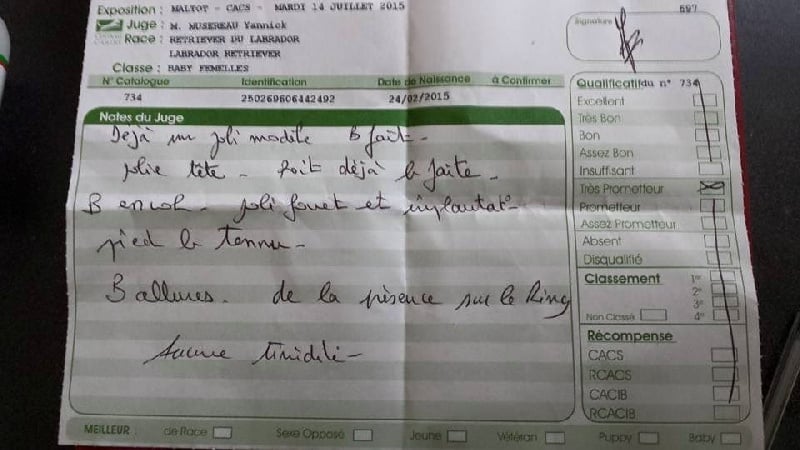 Exposition : MALTOT - CACS - MARDI 14 JUILLET 2015
Juge : M. MUSEREAU Yannick
Race : RETRIEVER DU LABRADOR
LABRADOR RETRIEVER
Classe : BABY FEMELLES
N° Catalogue Identification Date de Naissance à Confirmer
734 250269606442492 24/02/2015
Notes du Juge
Déjà un joli modèle B fait -
jolie tête - Poit déjà b faite -
B encol - joli fouet et implantat° -
pied b tennu -
B allures. de la présence sur le Ring
Aucune timidité -
697
Signature
Qualificatif du n° 734
Excellent
Très Bon
Bon
Assez Bon
Insuffisant
Très Prometteur
Prometteur
Assez Prometteur
Absent
Disqualifié
Classement 1er
2e
3e
Non Classé 4e
Récompense
CACS
RCACS
CACIB
RCACIB
MEILLEUR : de Race Sexe Opposé Jeune Vétéran Puppy Baby